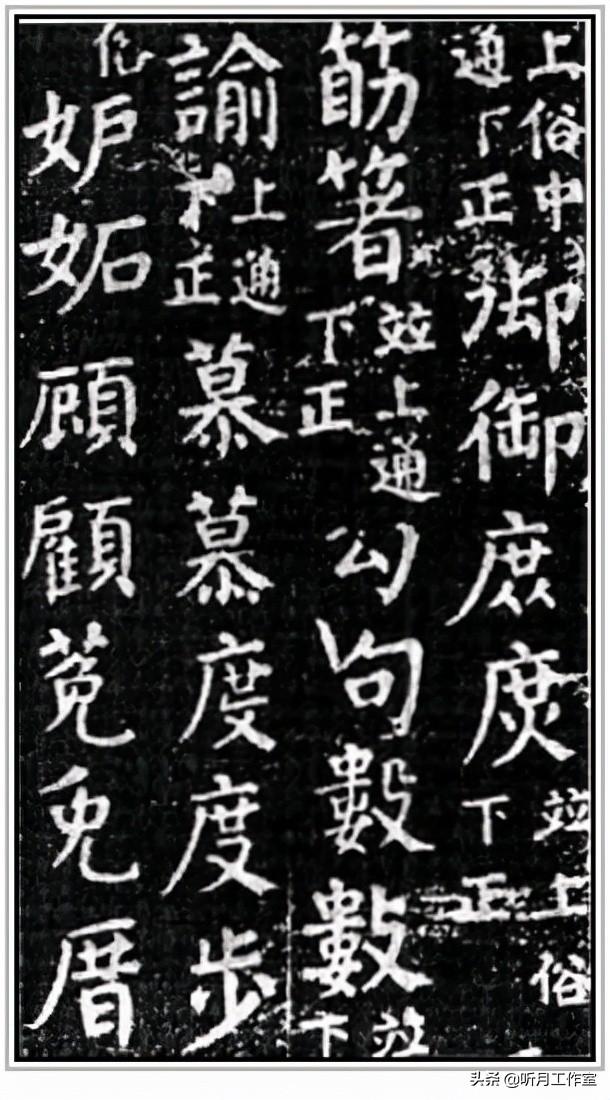 上俗中通下正御御庶庶並上俗下正
筯箸並上通下正勾句數數並下
諭上通下正慕慕度度步
妒妬顧顧莬免厝
头条 @听月工作室